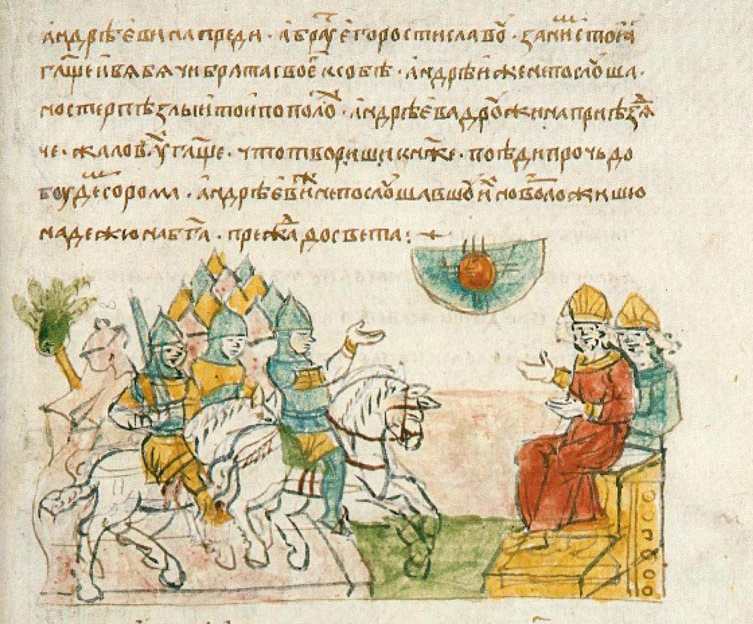 андрѣеви напреди · а братꙋ его ростиславоу · за ни стоꙗ
гл҃аше и вꙗбꙗчи брата своего к собѣ · андрѣи же не послоуша ·
но стерпѣ злыи тои пополох · андрѣева дроужина приѣздꙗ
че · жаловахꙋ гл҃аше · что твориши кн҃же · поѣди прочь до
боудем сорома · андрѣеви же не послоушавшоу их но возложишю
надежю на бг҃а · прежда до света :